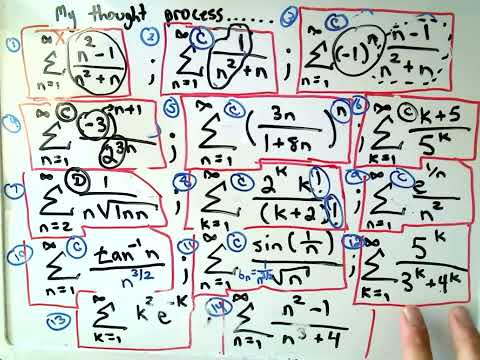 My thought process......
① ∞ X Σ n=1 n²-1 / n²+n ; ② ∞ C Σ n=1 1 / n²+n ; ③ ∞ C Σ n=1 (-1)ⁿ n-1 / n²+n
④ ∞ C Σ n=1 (-3)²ⁿ⁺¹ / 2³ⁿ ; ⑤ ∞ C Σ n=1 (3n / 1+8n)ⁿ ; ⑥ ∞ C Σ k=1 k+5 / 5ᵏ
⑦ ∞ D Σ n=2 1 / n√lnn ; ⑧ ∞ C Σ k=1 2ᵏ k! / (k+2)! ; ⑨ ∞ C Σ n=1 e^(1/n) / n²
⑩ ∞ C Σ n=1 tan⁻¹n / n^(3/2) ; ⑪ ∞ C Σ n=1 sin(1/n) / √n bₙ=1/n^(3/2) ; ⑫ ∞ Σ k=1 5ᵏ / 3ᵏ+4ᵏ
⑬ ∞ Σ k=1 k²e⁻ᵏ ; ⑭ ∞ Σ n=1 n²-1 / n³+4